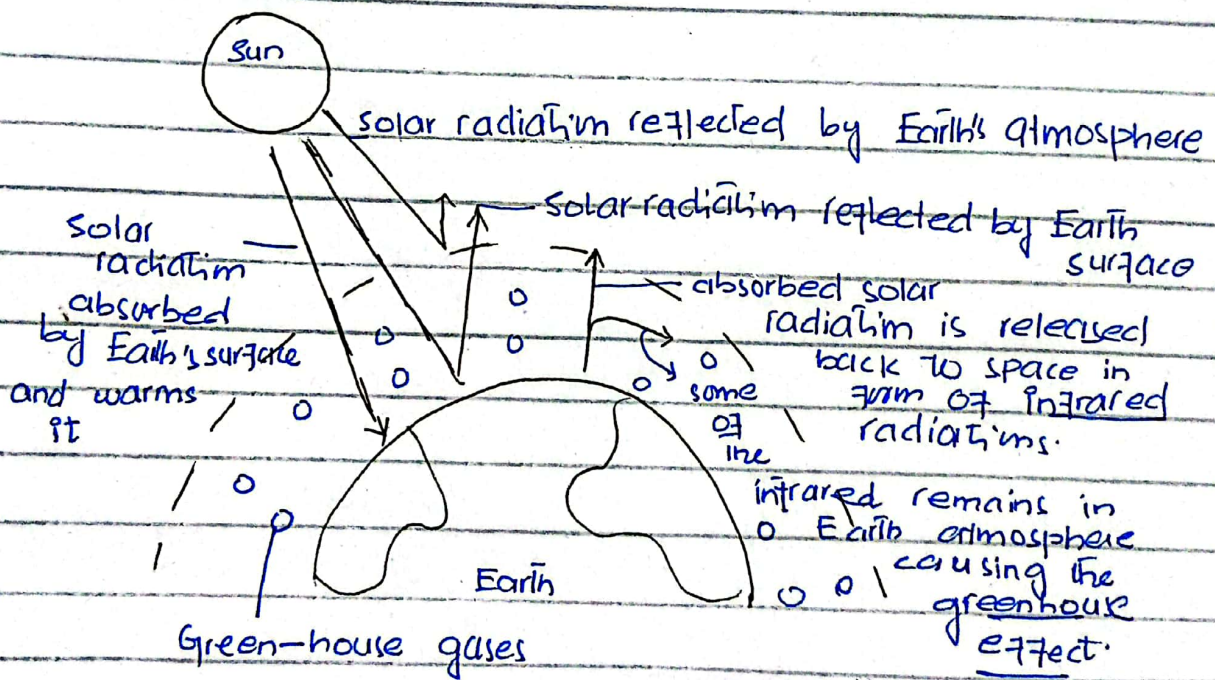 Sun
solar radiation reflected by Earth's atmosphere
solar radiation reflected by Earth
surface
solar
radiation
absorbed
by Earth's surface
and warms
it
absorbed solar
radiation is released
back to space in
form of infrared
radiations.
some
of
the
infrared remains in
Earth atmosphere
causing the
greenhouse
effect.
Earth
Green-house gases